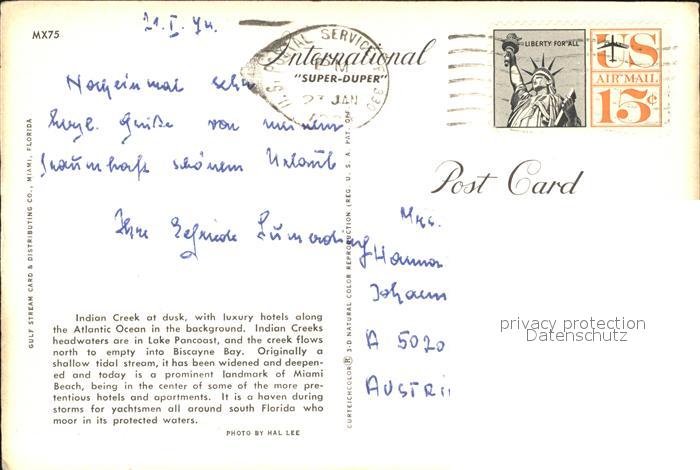 MX75
21.I.74.
International
"SUPER-DUPER"
U.S. POSTAL SERVICE
PM
23 JAN
330
LIBERTY FOR ALL
US
AIR MAIL
15¢
Post Card
Noch einmal sehr
herzl. Grüße von meinem
traumhaft schönem Urlaub
Ihre Elfriede
Mrs.
Hanna
Johann
A 5020
AUSTRI
privacy protection
Datenschutz
Indian Creek at dusk, with luxury hotels along
the Atlantic Ocean in the background. Indian Creeks
headwaters are in Lake Pancoast, and the creek flows
north to empty into Biscayne Bay. Originally a
shallow tidal stream, it has been widened and deepen-
ed and today is a prominent landmark of Miami
Beach, being in the center of some of the more pre-
tentious hotels and apartments. It is a haven during
storms for yachtsmen all around south Florida who
moor in its protected waters.
PHOTO BY HAL LEE
GULF STREAM CARD & DISTRIBUTING CO., MIAMI, FLORIDA
CURTEICHCOLOR® 3-D NATURAL COLOR REPRODUCTION (REG. U. S. A. PAT. OFF